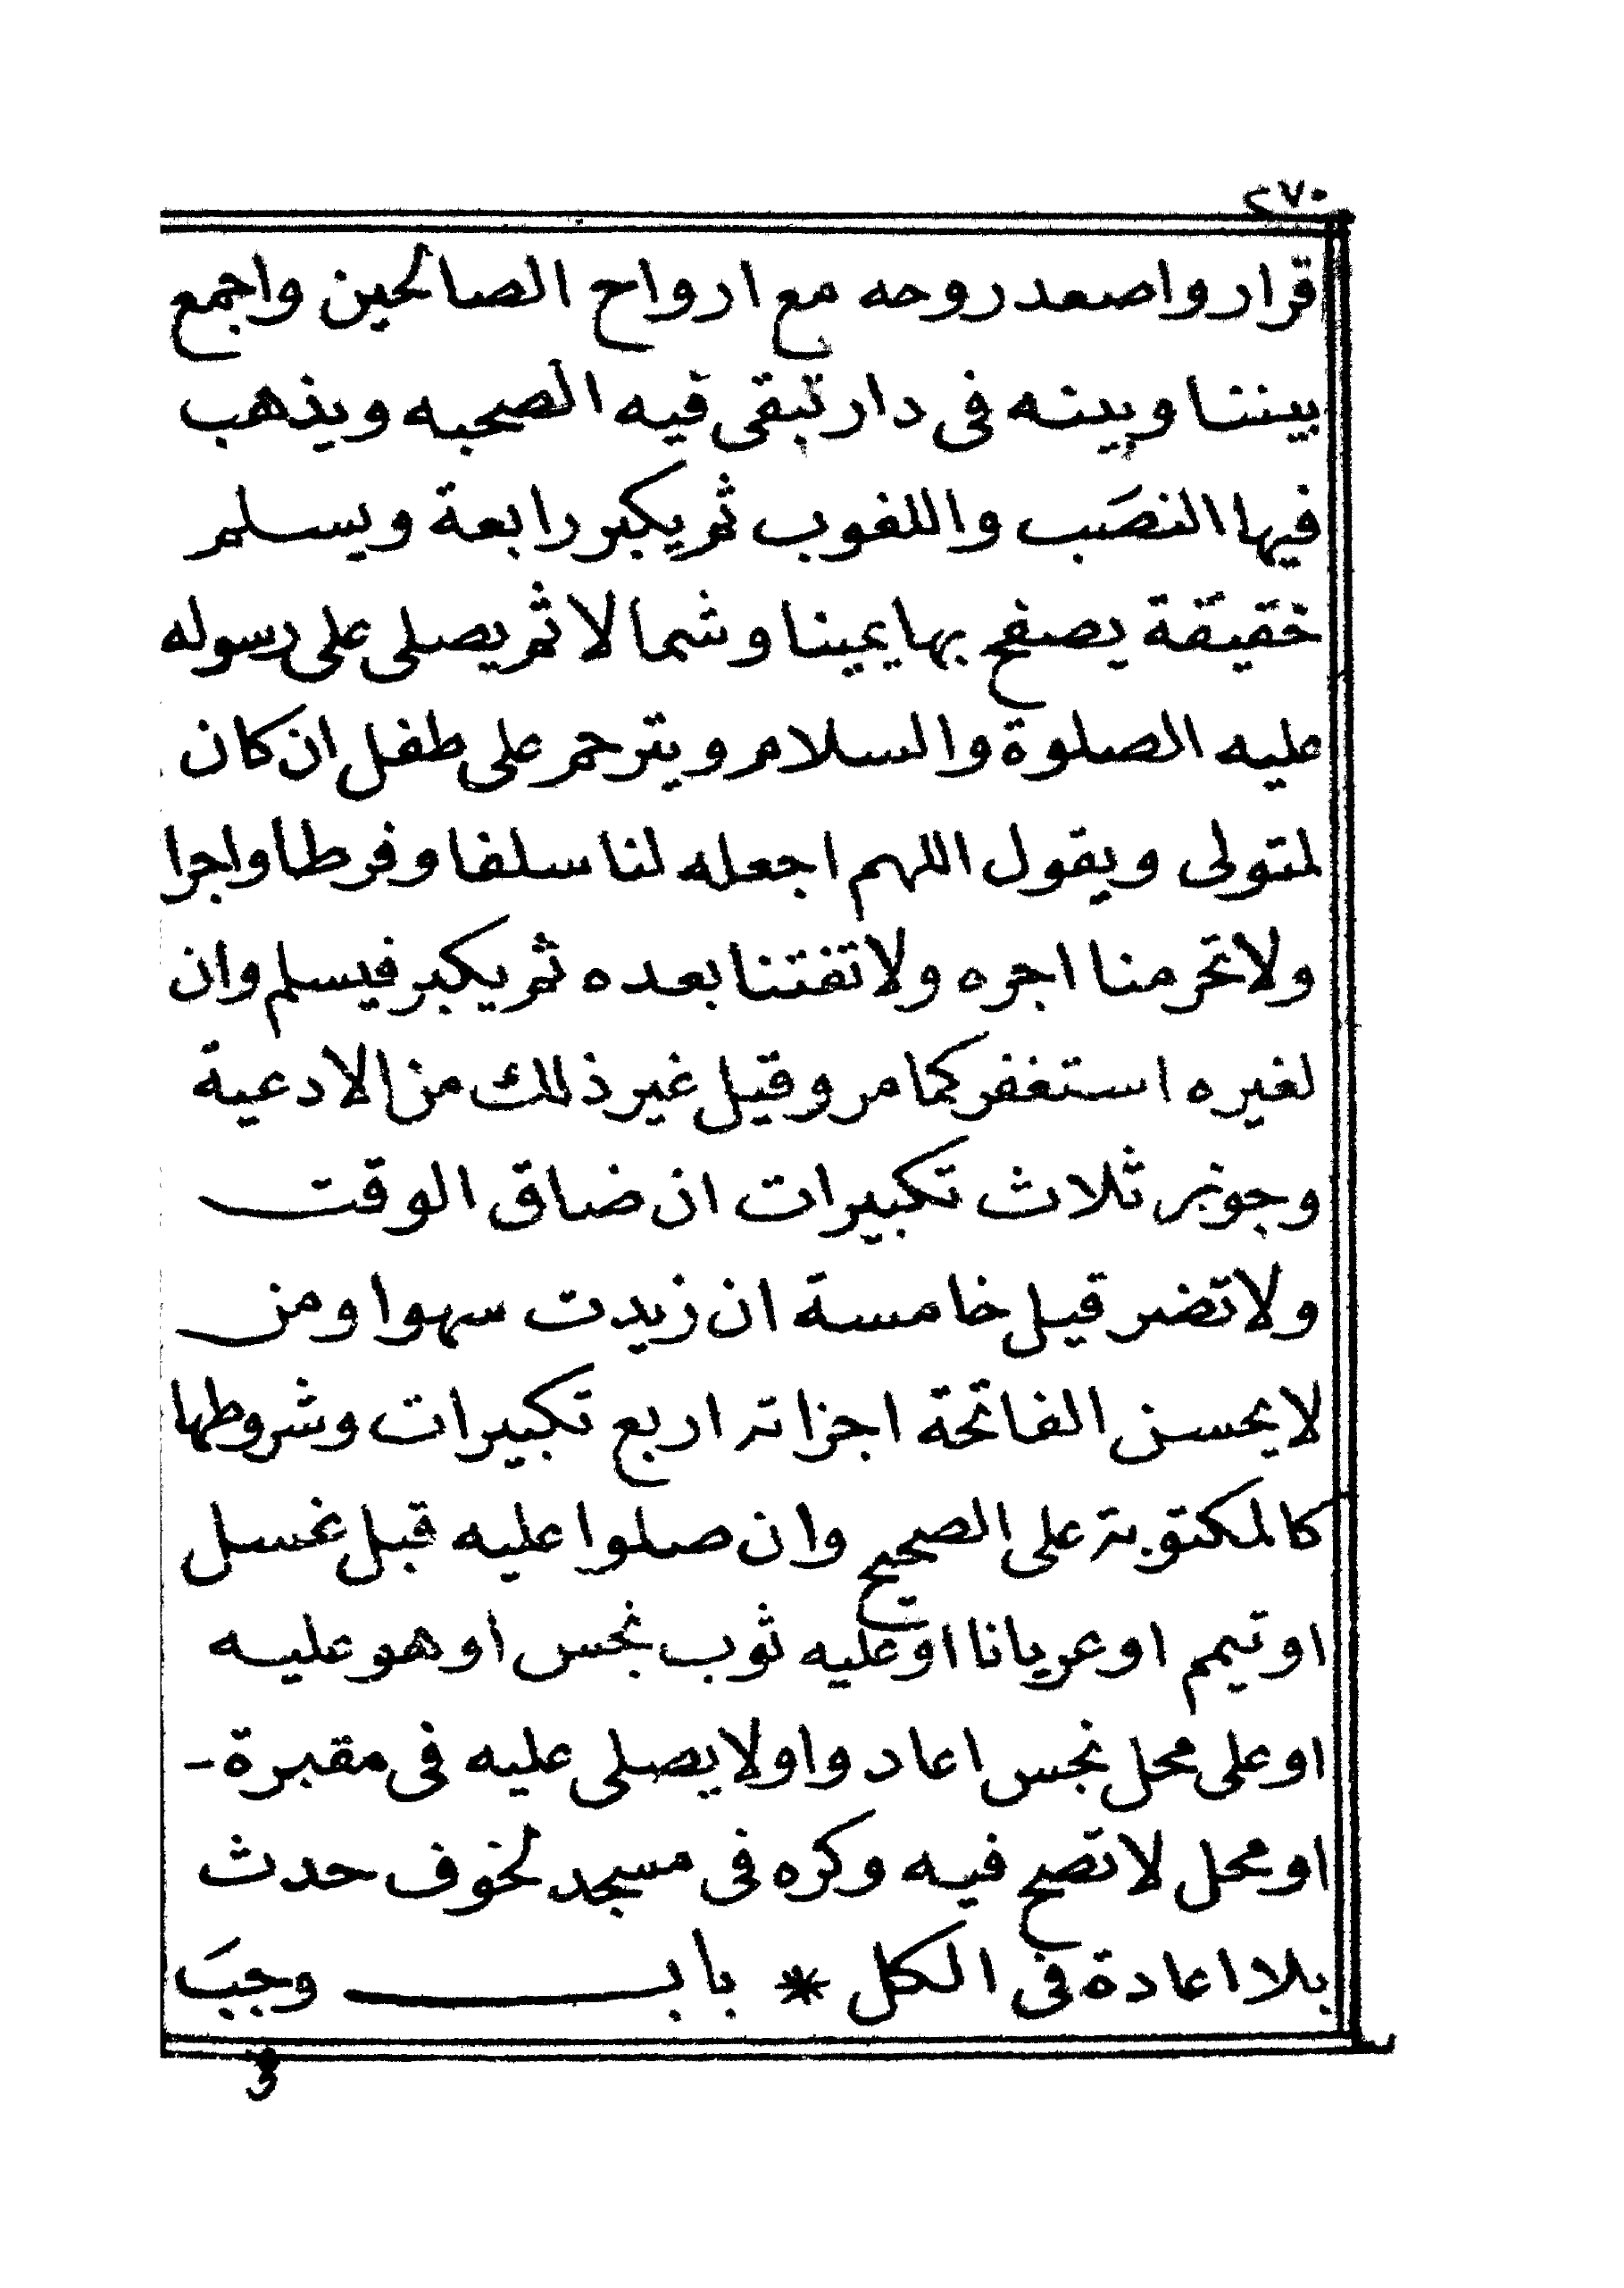 ٢٧٠
قرار واصعد روحه مع ارواح الصالحين واجمع
بيننا وبينه فى دار تبقى فيه الصحبه ويذهب
فيها النصَب واللغوب ثم يكبر رابعة ويسلم
خفيفة يصفح بها يمينا وشمالا ثم يصلى على رسوله
عليه الصلوة والسلام ويترحم على طفل ان كان
لمتولى ويقول اللهم اجعله لنا سلفا وفرطا واجرا
ولا تحرمنا اجره ولا تفتنا بعده ثم يكبر فيسلم وان
لغيره استغفر كما مر وقيل غير ذلك من الادعية
وجوز ثلاث تكبيرات ان ضاق الوقت
ولا تضر قيل خامسة ان زيدت سهوا ومن
لا يحسن الفاتحة اجزاته اربع تكبيرات وشروطها
كالمكتوبة على الصحيح وان صلوا عليه قبل غسل
او تيمم او عريانا او عليه ثوب نجس او هو عليه
او على محل نجس اعاد واولا يصلى عليه فى مقبرة -
او محل لا تصح فيه وكره فى مسجد لخوف حدث
بلا اعادة فى الكل * باب وجب